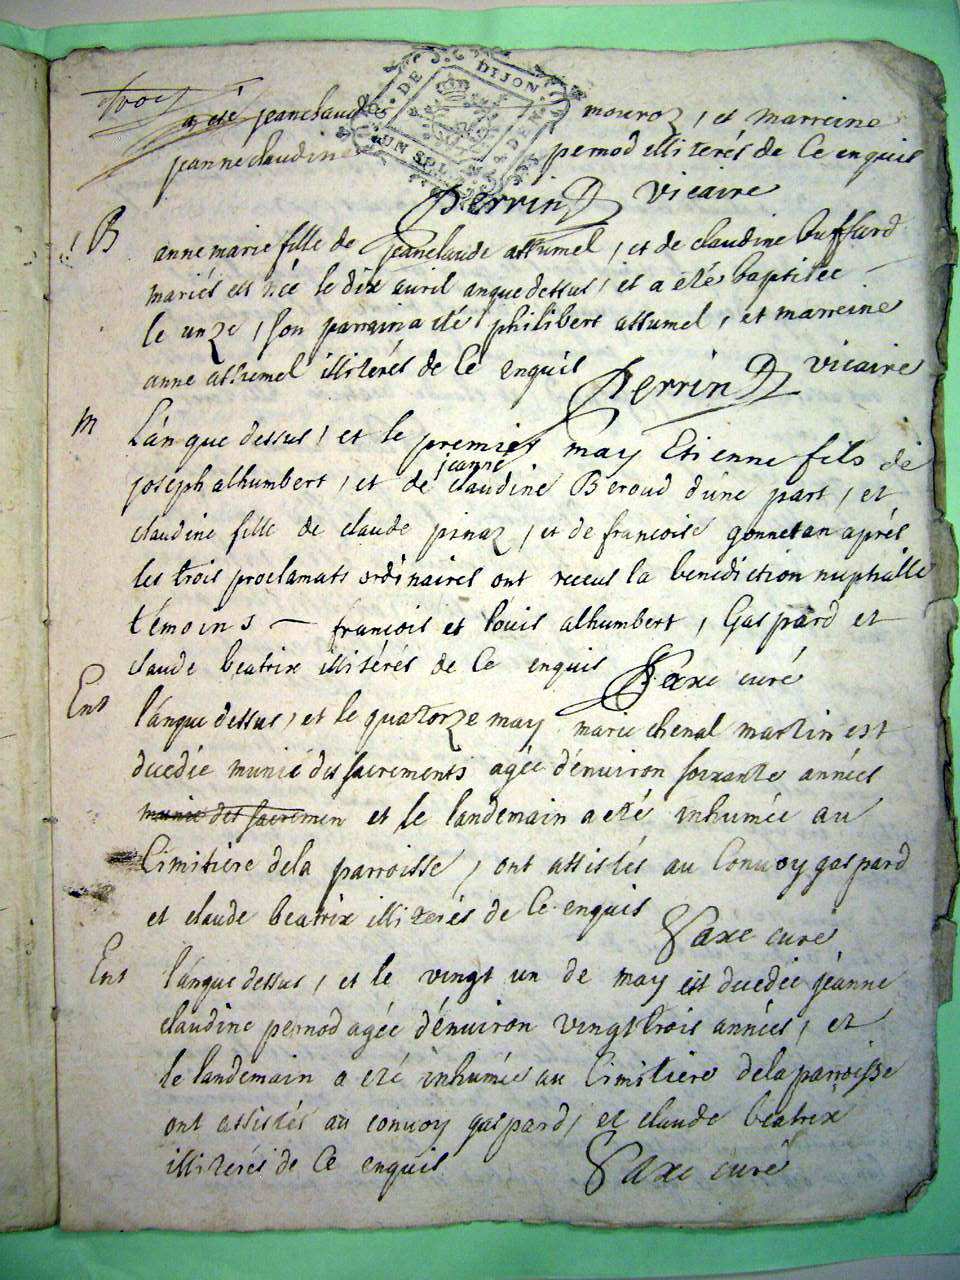 troy
a eté jeanclaude mouroz, et marreine
jeanne claudine pernod illiterés de ce enquis
Perrin vicaire
DE DIJON
UN SOL
B
anne marie fille de jeanclaude assumel, et de claudine buffard
mariés est née le dix avril anque dessus, et a eté baptisée
le unze, son parrain a eté philibert assumel, et marreine
anne assumel illiterés de ce enquis Perrin vicaire
M
L'an que dessus, et le premier may Etienne fils de
jeanne
joseph alhumbert, et de claudine Beroud d'une part, et
claudine fille de claude pinaz, et de francoise gonnetan aprés
les trois proclamats ordinaires ont receus la benediction nuptialle
témoins — francois et louis alhumbert, Gaspard et
claude beatrix illitérés de ce enquis Saxe curé
Ent
l'anque dessus, et le quatorze may marie chenal martin est
decedée munie des sacrements agée d'environ soixante années
munie des sacremen et le landemain a eté inhumée au
Cimitière de la parroisse, ont assistés au Convoy gaspard
et claude beatrix illiterés de ce enquis
Saxe curé
Ent
l'anque dessus, et le vingt un de may est decedée jeanne
claudine pernod agée d'environ vingt trois années, et
le landemain a eté inhumée au Cimitière de la parroisse
ont assistés au convoy gaspard, et claude beatrix
illiterés de ce enquis Saxe curé